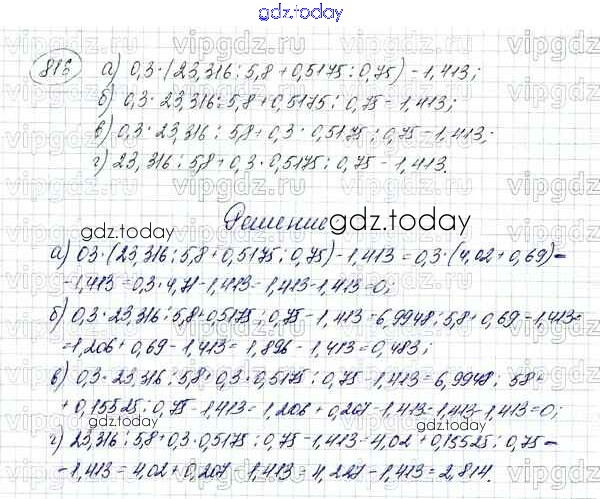 gdz.today
816) а) 0,3·(23,316:5,8+0,5175:0,75)-1,413;
б) 0,3·23,316:5,8+0,5175:0,75-1,413;
в) 0,3·23,316:5,8+0,3·0,5175:0,75-1,413;
г) 23,316:5,8+0,3·0,5175:0,75-1,413.
Решение
gdz.today
а) 0,3·(23,316:5,8+0,5175:0,75)-1,413=0,3·(4,02+0,69)-
-1,413=0,3·4,71-1,413=1,413-1,413=0;
б) 0,3·23,316:5,8+0,5175:0,75-1,413=6,9948:5,8+0,69-1,413=
=1,206+0,69-1,413=1,896-1,413=0,483;
в) 0,3·23,316:5,8+0,3·0,5175:0,75-1,413=6,9948:5,8+
+0,15525:0,75-1,413=1,206+0,207-1,413=1,413-1,413=0;
г) 23,316:5,8+0,3·0,5175:0,75-1,413=4,02+0,15525:0,75-
-1,413=4,02+0,207-1,413=4,227-1,413=2,814.
gdz.today
gdz.today